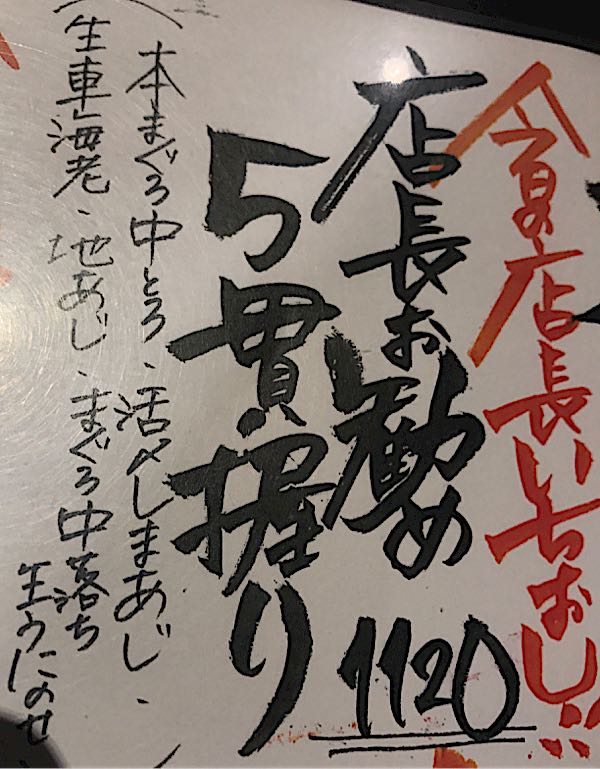 今日の店長いちおし!!
店長お勧め
1120
5貫握り
本まぐろ中とろ、活〆しまあじ、
生車海老、地あじ、まぐろ中落ち
生うにのせ、